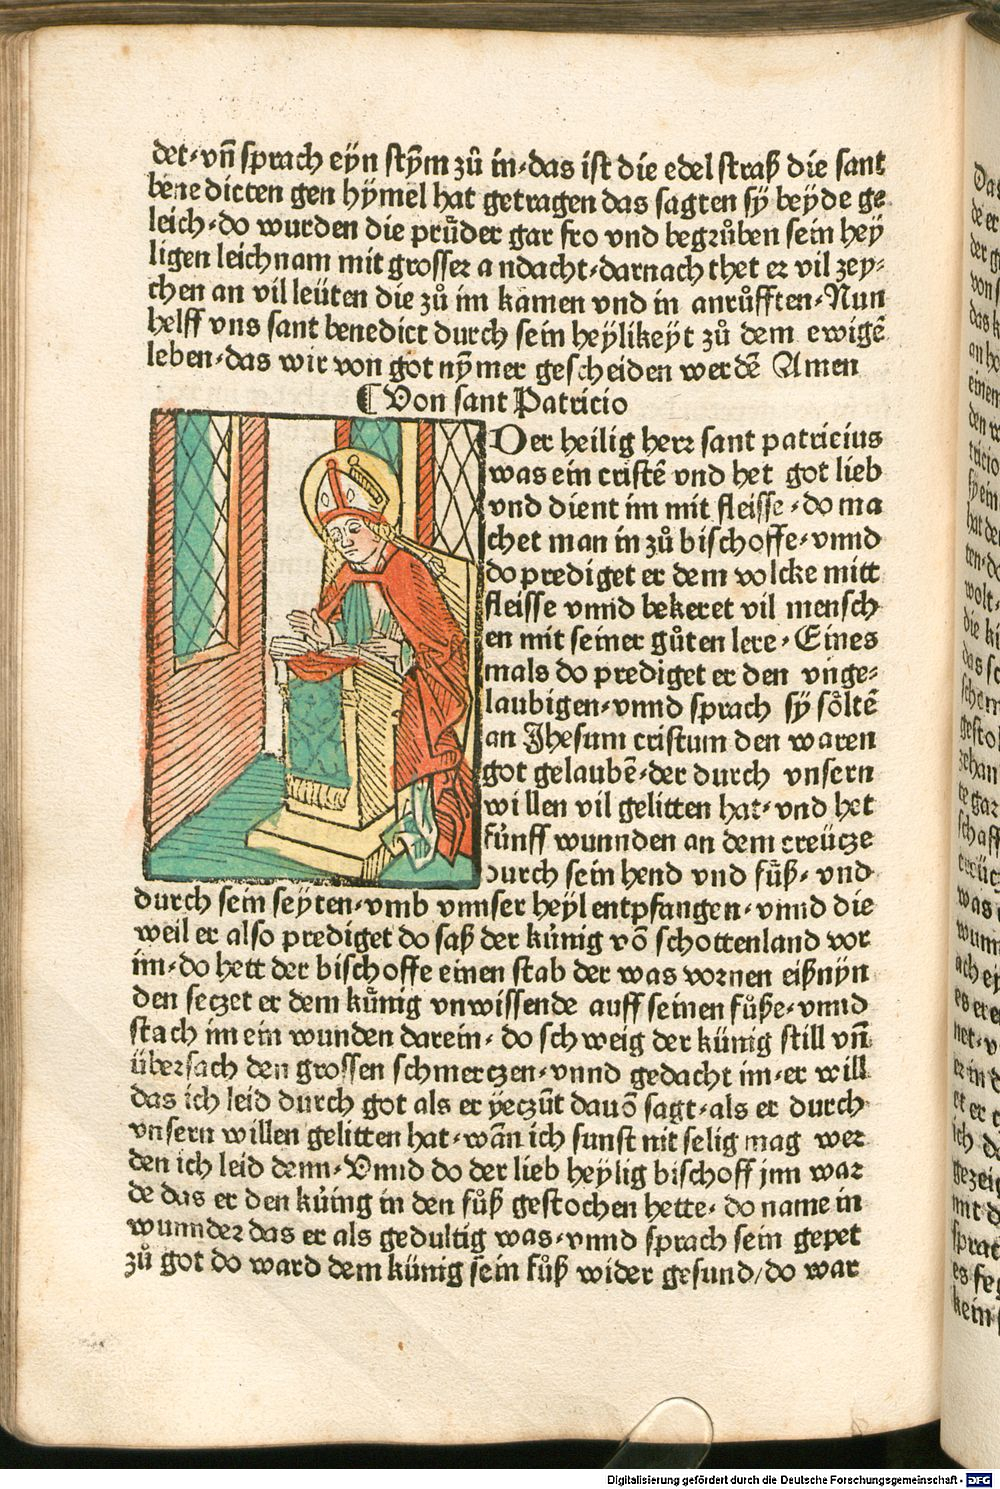 det·vn̄ sprach eyn stym̄ zů in·das ist die edel straß die sant
benedicten gen hymel hat getragen das sagten sÿ beyde ge
leich·do wurden die průder gar fro vnd begrůben sein hey
ligen leichnam mit grosser andacht·darnach thet er vil zey⸗
chen an vil leüten die zů im kamen vnd in anrůfften·Nun
helff vns sant benedict durch sein heylikeyt zů dem ewigē
leben·das wir von got nym̄er gescheiden werdē Amen
¶ Von sant Patricio
Der heilig herr sant patricius
was ein cristē vnd het got lieb
vnd dient im mit fleisse·do ma
chet man in zů bischoffe·vnnd
do prediget er dem volcke mitt
fleisse vnnd bekeret vil mensch
en mit seiner gůten lere·Eines
mals do prediget er den vnge⸗
laubigen·vnnd sprach sÿ söltē
an Jhesum cristum den waren
got gelaubē·der durch vnsern
willen vil gelitten hat·vnd het
fünff wunnden an dem creücze
durch sein hend vnd fůß·vnd
durch sein seyten·vmb vnnser heyl entpfangen·vnnd die
weil er also prediget do saß der künig vō schottenland vor
im·do hett der bischoffe einen stab der was vornen eißnyn
den seczet er dem künig vnwissende auff seinen fůße·vnnd
stach im ein wunden darein·do schweig der künig still vn̄
übersach den grossen schmerczen·vnnd gedacht im·er will
das ich leid durch got als er yeczūt dauō sagt·als er durch
vnsern willen gelitten hat·wān ich sunst nit selig mag wer
den ich leid denn·Vnnd do der lieb heylig bischoff jnn war
de das er den küing in den fůß gestochen hette·do name in
wunnder das er als gedultig was·vnnd sprach sein gepet
zů got do ward dem künig sein fůß wider gesund/do war
Digitalisierung gefördert durch die Deutsche Forschungsgemeinschaft - DFG